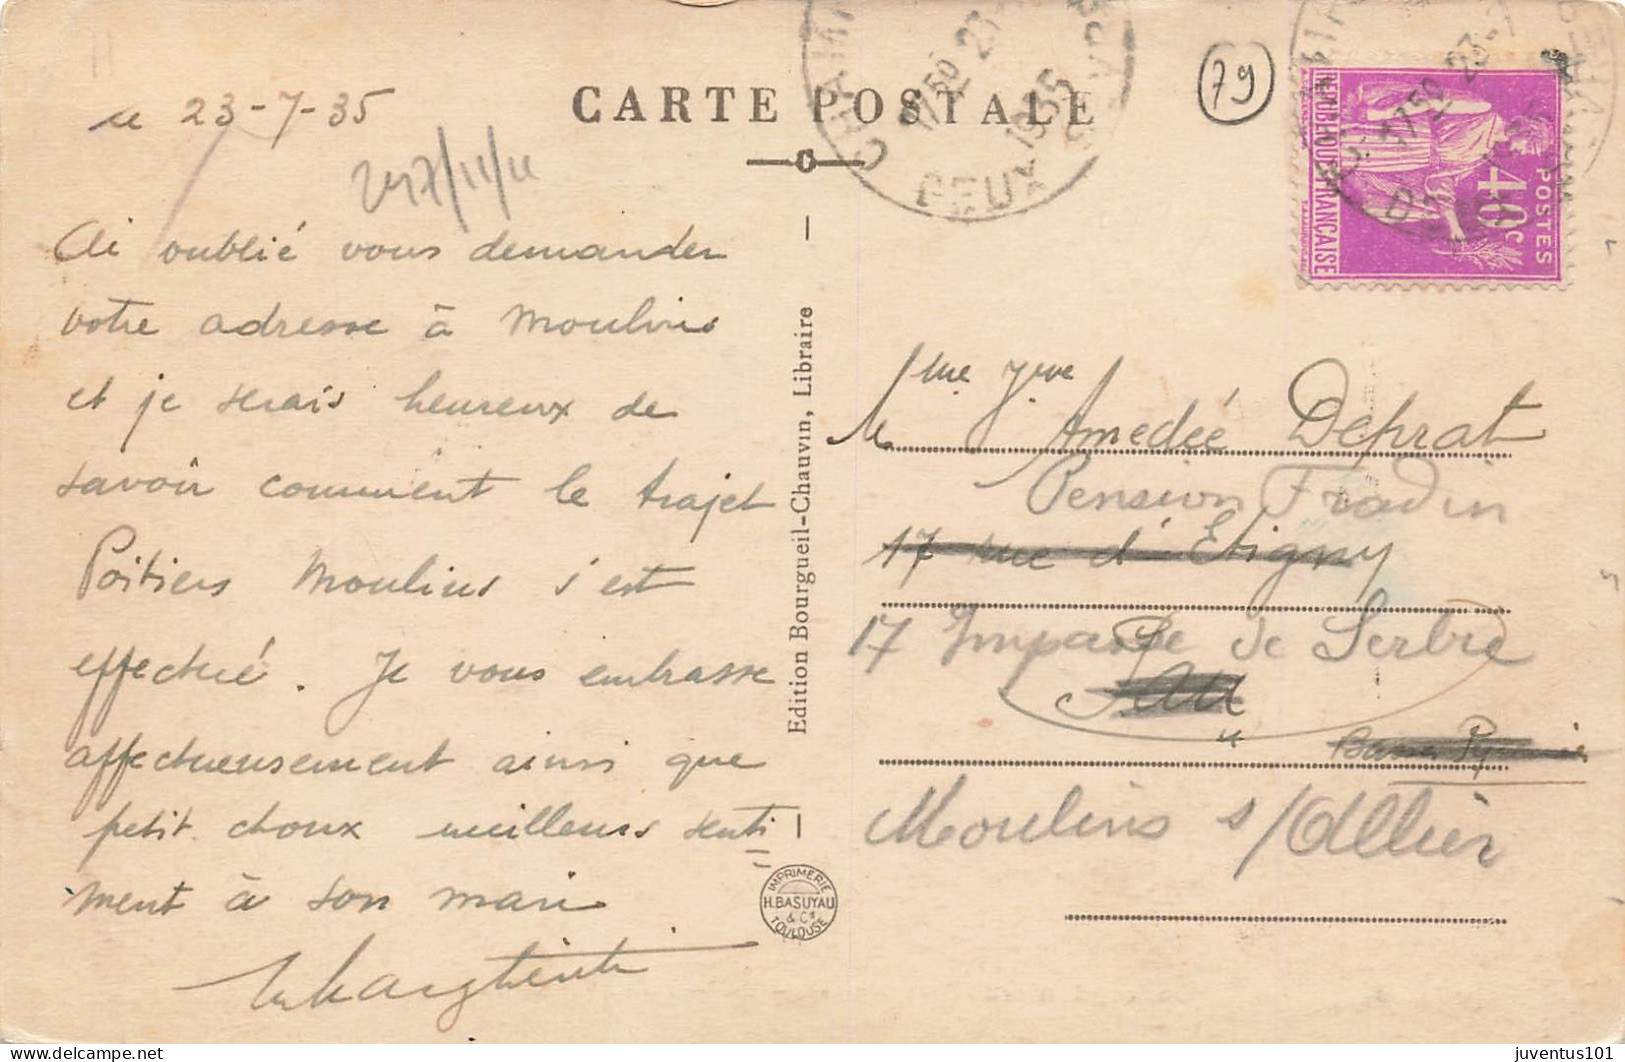 le 23-7-35
CARTE POSTALE
79
17 50 23-7
1935
DEUX
REPUBLIQUE FRANÇAISE
POSTES
40c
Ai oublié vous demander
votre adresse à Moulins
et je serais heureux de
savoir comment le trajet
Poitiers Moulins s'est
effectué. Je vous embrasse
affectueusement ainsi que
petit choux meilleurs senti
ment à son mari
Edition Bourgueil-Chauvin, Libraire
IMPRIMERIE
H. BASUYAU
& Cie
TOULOUSE
Mme Yve
Amedée Deprat
Pension Fradin
17 rue d'Etigny
17 Impasse de Serbie
Pau
Moulins s/Allier
juventus101